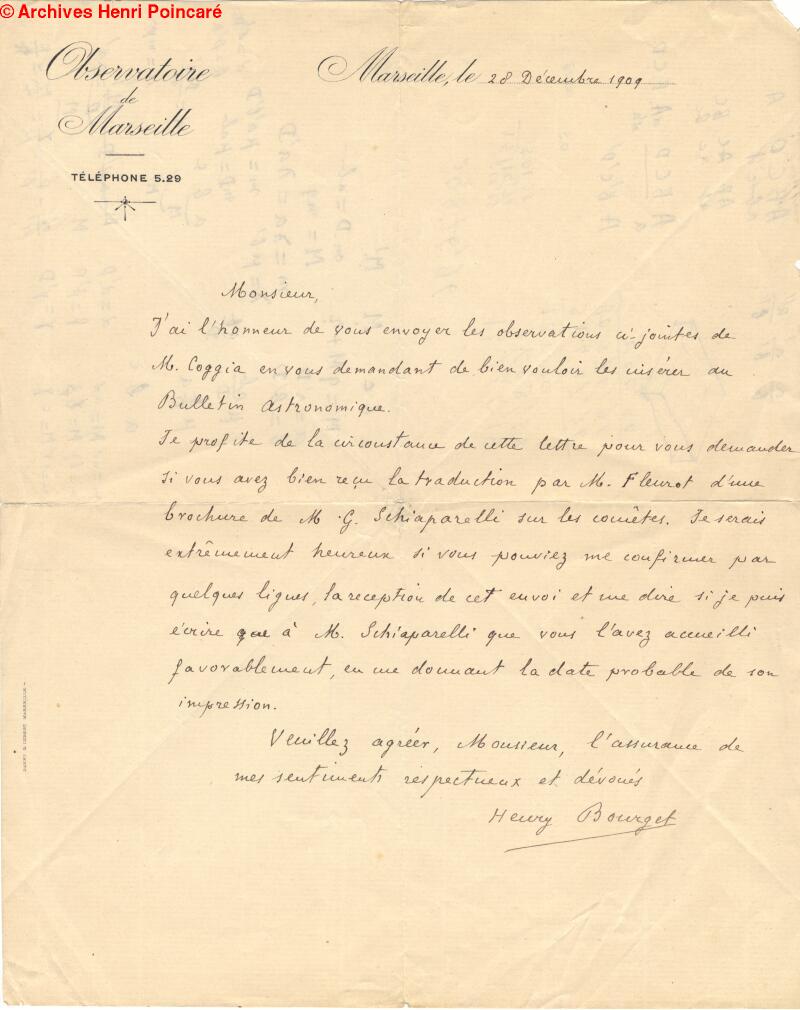 © Archives Henri Poincaré
Observatoire
de
Marseille
TÉLÉPHONE 5.29
Marseille, le 28 Décembre 1909
Monsieur,
J'ai l'honneur de vous envoyer les observations ci-jointes de
M. Coggia en vous demandant de bien vouloir les insérer au
Bulletin Astronomique.
Je profite de la circonstance de cette lettre pour vous demander
si vous avez bien reçu la traduction par M. Fleurot d'une
brochure de M. G. Schiaparelli sur les comètes. Je serais
extrêmement heureux si vous pouviez me confirmer par
quelques lignes, la reception de cet envoi et me dire si je puis
écrire que à M. Schiaparelli que vous l'avez accueilli
favorablement, en me donnant la date probable de son
impression.
Veuillez agréer, Monsieur, l'assurance de
mes sentiments respectueux et dévoués
Henry Bourget